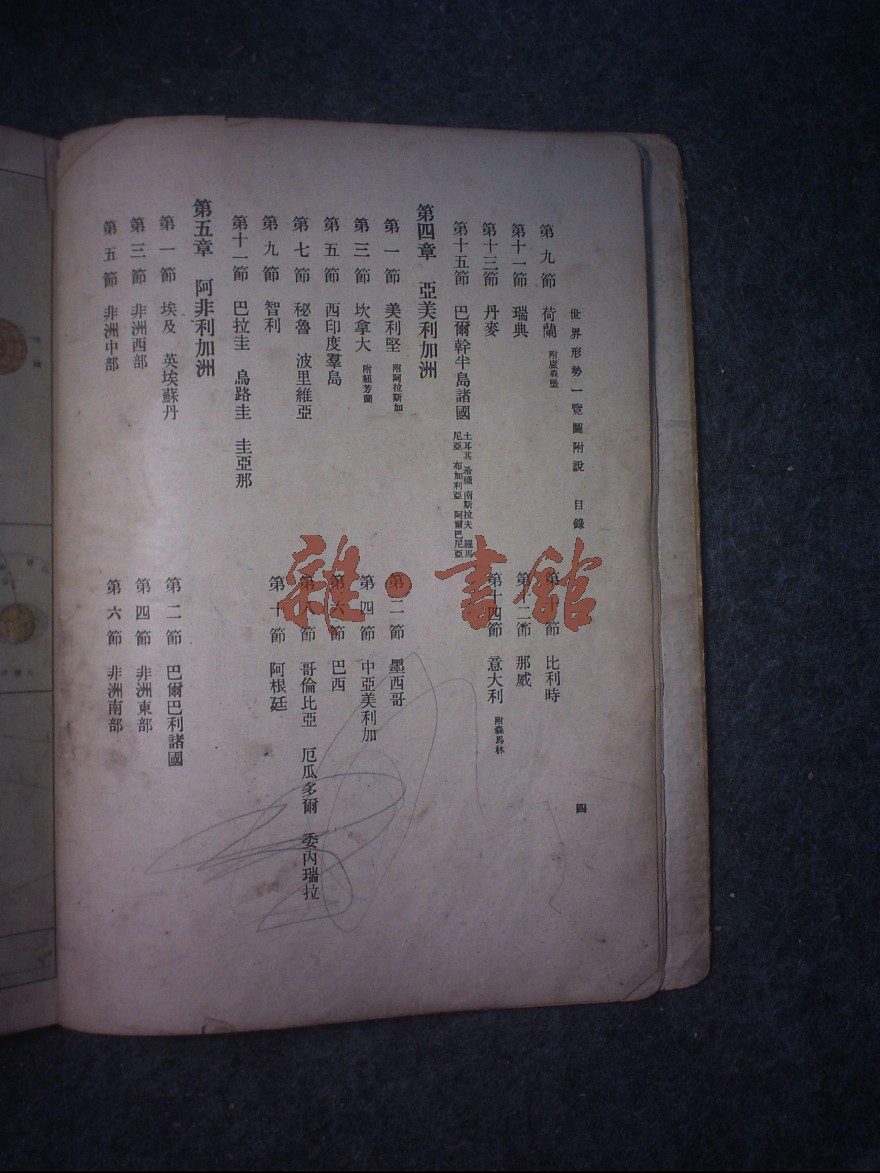 世界形勢一覽圖附說 目錄 四
第九節 荷蘭 附盧森堡 第十節 比利時
第十一節 瑞典 第十二節 那威
第十三節 丹麥 第十四節 意大利 附森馬林
第十五節 巴爾幹半島諸國 土耳其 希臘 南斯拉夫 羅馬尼亞 布加利亞 阿爾巴尼亞
第四章 亞美利加洲
第一節 美利堅 附阿拉斯加 第二節 墨西哥
第三節 坎拿大 附紐芳蘭 第四節 中亞美利加
第五節 西印度羣島 第六節 巴西
第七節 秘魯 波里維亞 第八節 哥倫比亞 厄瓜多爾 委內瑞拉
第九節 智利 第十節 阿根廷
第十一節 巴拉圭 烏路圭 圭亞那
第五章 阿非利加洲
第一節 埃及 英埃蘇丹 第二節 巴爾巴利諸國
第三節 非洲西部 第四節 非洲東部
第五節 非洲中部 第六節 非洲南部
雜·書館